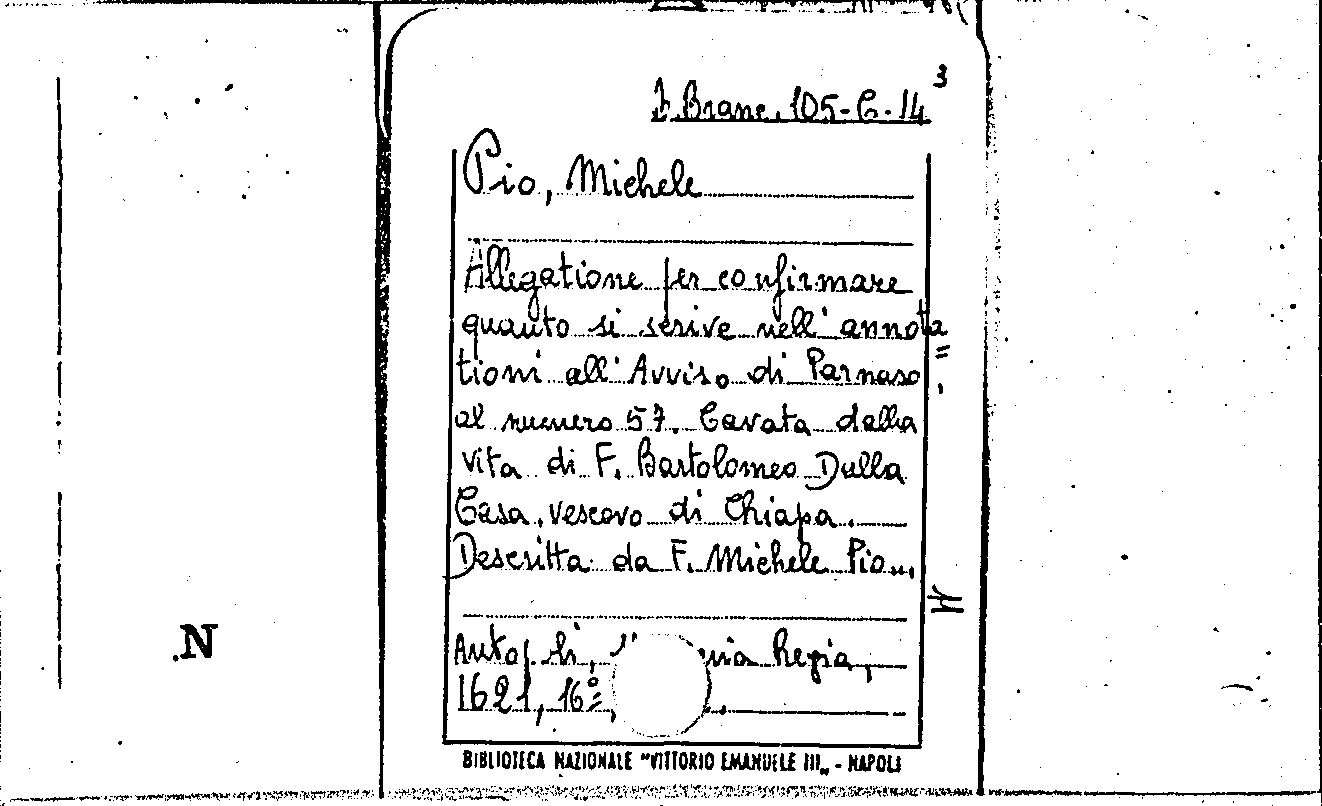 Branc. 105-C-14 3
Pio, Michele
Allegatione per confirmare
quanto si scrive nell' annota
tioni all' Avviso di Parnaso =
al numero 57. Cavata dalla
vita di F. Bartolomeo Dalla
Casa, vescovo di Chiapa.
Descritta da F. Michele Pio...
Regia,
1621, 16º
BIBLIOTECA NAZIONALE "VITTORIO EMANUELE III„ - NAPOLI
.N